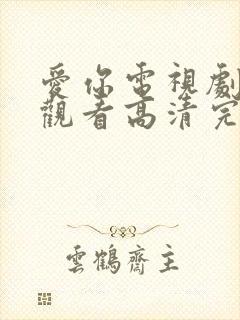 愛你電視劇
觀看高清完
雲鶴齋主